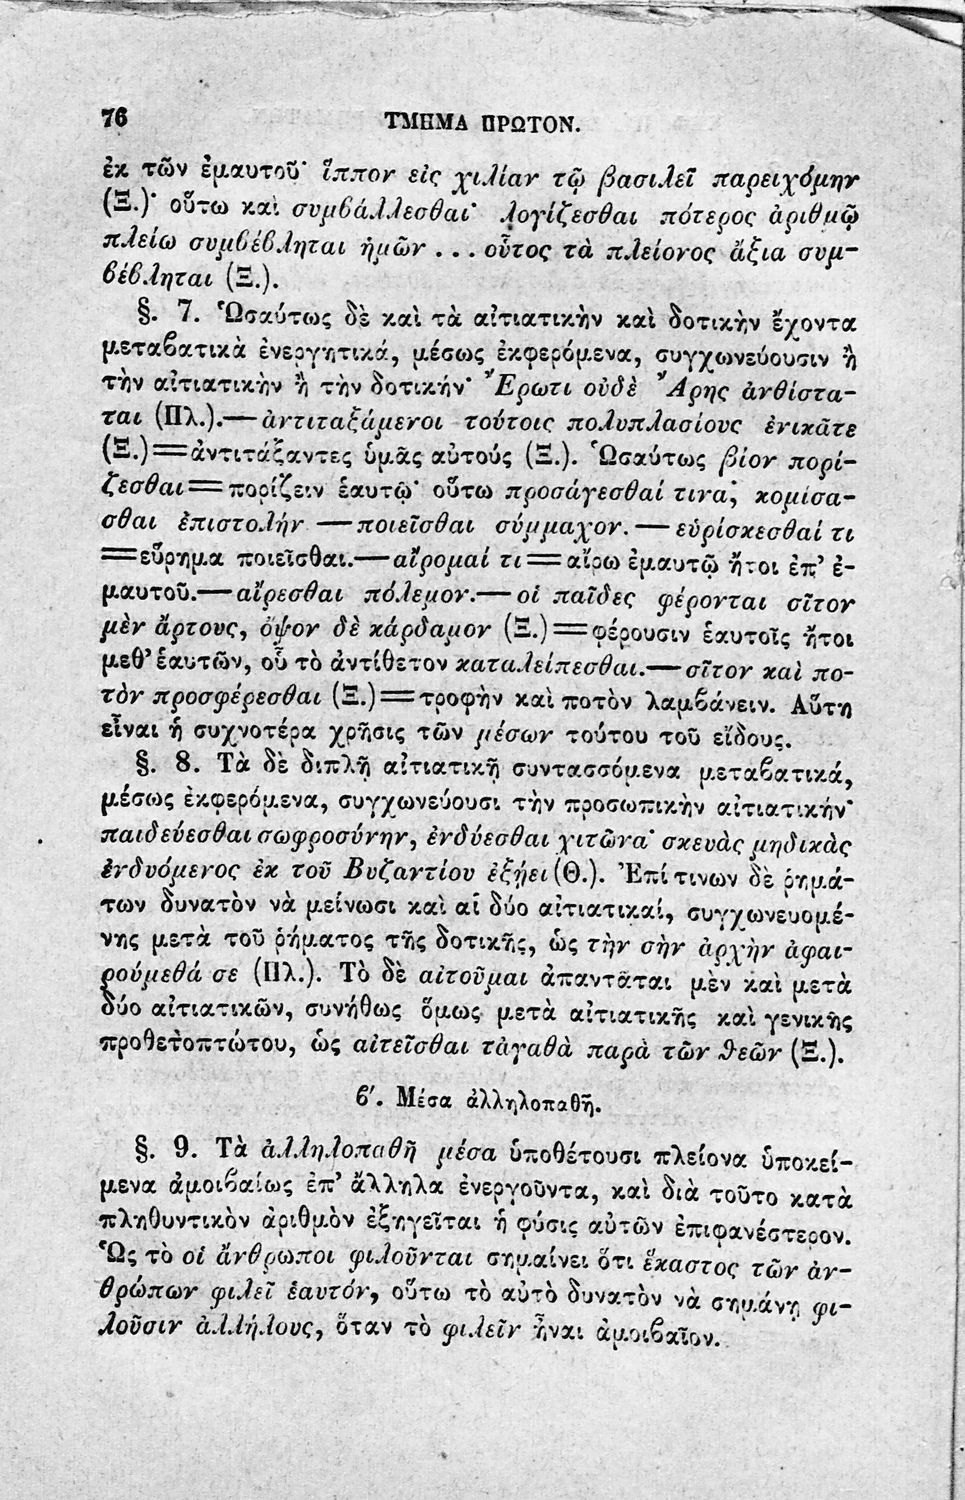 76
ΤΜΗΜΑ ΠΡΩΤΟΝ.
ἐκ τῶν ἐμαυτοῦ· ἵππον εἰς χιλίαν τῷ βασιλεῖ παρειχόμην
(Ξ.)· οὕτω καὶ συμβάλλεσθαι· λογίζεσθαι πότερος ἀριθμῷ
πλείω συμβέβληται ἡμῶν ... οὗτος τὰ πλείονος ἄξια συμ-
βέβληται (Ξ.).
§. 7. Ὡσαύτως δὲ καὶ τὰ αἰτιατικὴν καὶ δοτικὴν ἔχοντα
μεταβατικὰ ἐνεργητικά, μέσως ἐκφερόμενα, συγχωνεύουσιν ἢ
τὴν αἰτιατικὴν ἢ τὴν δοτικήν· Ἔρωτι οὐδὲ Ἄρης ἀνθίστα-
ται (Πλ.).—ἀντιταξάμενοι τούτοις πολυπλασίους ἐνικᾶτε
(Ξ.)=ἀντιτάξαντες ὑμᾶς αὐτούς (Ξ.). Ὡσαύτως βίον πορί-
ζεσθαι=πορίζειν ἑαυτῷ· οὕτω προσάγεσθαί τινα, κομίσα-
σθαι ἐπιστολήν —ποιεῖσθαι σύμμαχον.— εὑρίσκεσθαί τι
=εὕρημα ποιεῖσθαι.—αἴρομαί τι=αἴρω ἐμαυτῷ ἤτοι ἐπ' ἐ-
μαυτοῦ.—αἴρεσθαι πόλεμον.—οἱ παῖδες φέρονται σῖτον
μὲν ἄρτους, ὄψον δὲ κάρδαμον (Ξ.)=φέρουσιν ἑαυτοῖς ἤτοι
μεθ' ἑαυτῶν, οὗ τὸ ἀντίθετον καταλείπεσθαι.—σῖτον καὶ πο-
τὸν προσφέρεσθαι (Ξ.)=τροφὴν καὶ ποτὸν λαμβάνειν. Αὕτη
εἶναι ἡ συχνοτέρα χρῆσις τῶν μέσων τούτου τοῦ εἴδους.
§. 8. Τὰ δὲ διπλῆ αἰτιατικῇ συντασσόμενα μεταβατικά,
μέσως ἐκφερόμενα, συγχωνεύουσι τὴν προσωπικὴν αἰτιατικήν·
παιδεύεσθαι σωφροσύνην, ἐνδύεσθαι χιτῶνα· σκευὰς μηδικὰς
ἐνδυόμενος ἐκ τοῦ Βυζαντίου ἐξῄει (Θ.). Ἐπί τινων δὲ ῥημά-
των δυνατὸν νὰ μείνωσι καὶ αἱ δύο αἰτιατικαί, συγχωνευομέ-
νης μετὰ τοῦ ῥήματος τῆς δοτικῆς, ὡς τὴν σὴν ἀρχὴν ἀφαι-
ρούμεθά σε (Πλ.). Τὸ δὲ αἰτοῦμαι ἀπαντᾶται μὲν καὶ μετὰ
δύο αἰτιατικῶν, συνήθως ὅμως μετὰ αἰτιατικῆς καὶ γενικῆς
προθετοπτώτου, ὡς αἰτεῖσθαι τἀγαθὰ παρὰ τῶν θεῶν (Ξ.).
β'. Μέσα ἀλληλοπαθῆ.
§. 9. Τὰ ἀλληλοπαθῆ μέσα ὑποθέτουσι πλείονα ὑποκεί-
μενα ἀμοιβαίως ἐπ' ἄλληλα ἐνεργοῦντα, καὶ διὰ τοῦτο κατὰ
πληθυντικὸν ἀριθμὸν ἐξηγεῖται ἡ φύσις αὐτῶν ἐπιφανέστερον.
Ὡς τὸ οἱ ἄνθρωποι φιλοῦνται σημαίνει ὅτι ἕκαστος τῶν ἀν-
θρώπων φιλεῖ ἑαυτόν, οὕτω τὸ αὐτὸ δυνατὸν νὰ σημάνῃ φι-
λοῦσιν ἀλλήλους, ὅταν τὸ φιλεῖν ἦναι ἀμοιβαῖον.